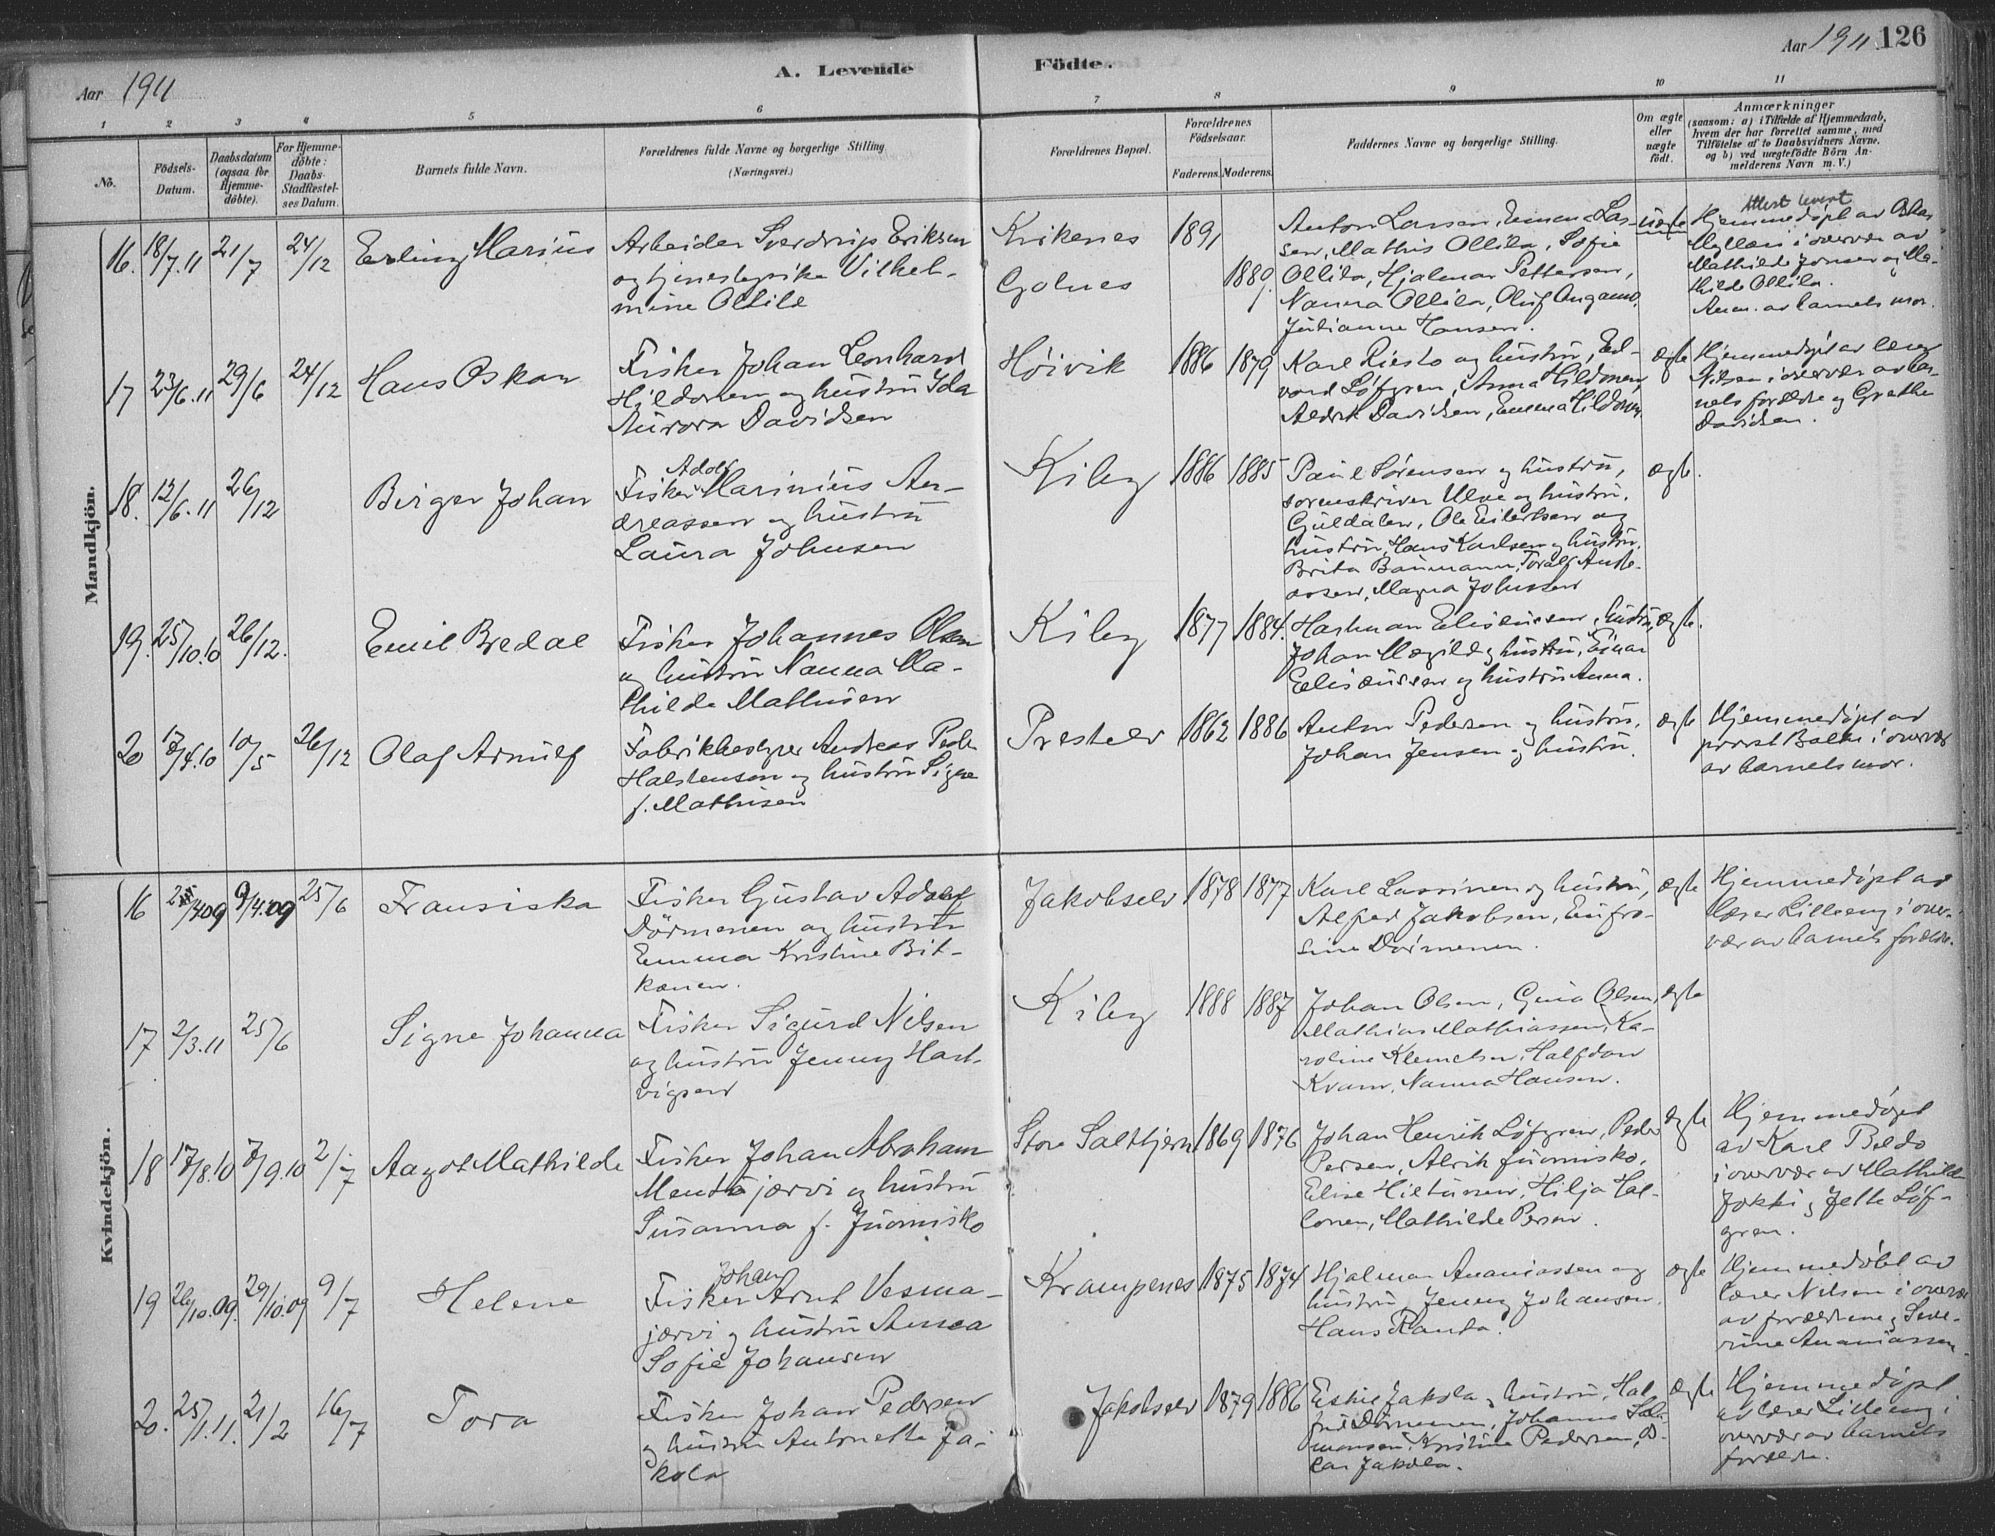 Aar 1911
A. Levende Födte.
Aar 1911. 126
1 2 3 4 5 6 7 8 9 10 11
No.
Födsels-Datum.
Daabsdatum (ogsaa for Hjemme-döbte).
For Hjemme-döbte: Daabs-Stadfæstel-ses Datum.
Barnets fulde Navn.
Forældrenes fulde Navne og borgerlige Stilling (Næringsvei.)
Forældrenes Bopæl.
Forældrenes Födselsaar.
Faderens. Moderens.
Faddernes Navne og borgerlige Stilling.
Om ægte eller uægte födt.
Anmærkninger
(saasom: a) i Tilfælde af Hjemmedaab,
hvem der har forrettet samme, med
Tilföielse af to Daabsvidners Navne,
og b) ved uægtefödte Börn An-
melderens Navn m. V.)
Mandkjön.
16. 18/7.11 21/7 24/12 Erling Marius
Arbeider Sverdrup Eriksen
og tjenestepike Vilhel-
mine Ollila
Kirkenes 1891
Golnes 1889
Anton Larsen, Emma Lar-
sen, Mathis Ollila, Sofie
Ollila, Hjalmar Pettersen,
Nanna Ollila, Oluf
Julianne Hansen.
uægte
Attest levert
Hjemmedøpt av
i overvær av
Mathilde Jensen og Ma-
thilde Ollila.
Anm. av barnets mor.
17 23/6.11 29/6 24/12 Hans Oskar
Fisker Johan Leonhard
Hildonen og hustru Ida
Aurora Davidsen
Høivik 1886 1879
Karl Riesto og hustru, Ed-
vard Løfgren, Anna Hildonen,
Aldrik Davidsen, Emma Hildonen
ægte
Hjemmedøpt av lærer
Nilsen i overvær av bar-
nets forældre og Grethe
Davidsen.
18. 12/6.11 26/12 Birger Johan
Adolf
Fisker Marinius An-
dreassen og hustru
Laura Johnsen
Kiby 1886 1885
Paul Sørensen og hustru,
sorenskriver Ulve og hustru,
Guldalen, Ole Eilertsen og
hustru, Hans Karlsen og hustru,
Brita Baumann, Toralf Andre-
assen, Magna Johnsen
ægte.
19. 25/10.10 26/12. Emil Bredal
Fisker Johannes Olsen
og hustru Nanna Ma-
thilde Mathisen
Kiby 1877 1884.
Hartman Elisæussen, hustru,
Johan Magild og hustru, Einar
Elisæussen og hustru Anna.
ægte.
20 17/4.10 10/5 26/12 Olaf Arnulf
Fabrikbestyrer Andreas Peder
Halstensen og hustru Signe
f. Mathisen
Prestelv 1862 1886
Anton Pedersen og hustru,
Johan Jensen og hustru.
ægte
Hjemmedøpt av
provst Balke i overvær
av barnets mor.
Kvindekjön.
16 25/6 Fransiska
Fisker Gustav Adolf
Dørmenen og hustru
Emma Kristine Bit-
kanen.
Jakobselv 1878 1877
Karl Lassinen og hustru,
Alfred Jakobsen, Eufro-
sine Dørmenen.
ægte
Hjemmedøpt av
lærer Lilleeng i over-
vær av barnets forældre.
17 2/3.11 25/6 Signe Johanna
Fisker Sigurd Nilsen
og hustru Jenny Hart-
vigsen
Kiby 1888 1887
Johan Olsen, Gina Olsen,
Mathias Mathiassen, Ka-
roline Klemetsen, Halfdan
Kvam, Nanna Hansen.
ægte
18 17/8.10 7/9.10 2/7 Aagot Mathilde
Fisker Johan Abraham
Mentujærvi og hustru
Susanna f. Juomisko
Store Saltbjern 1869 1876
Johan Henrik Løfgren, Peder
Persen, Alrik Juomisko,
Elise Hietunen, Hilja Hal-
lonen, Mathilde Persen.
ægte
Hjemmedøpt
av Karl Beldo
i overvær av Mathilde
Jokki og Jette Løf-
gren.
19 26/10.09. 29/10.09 9/7 Helene
Johan
Fisker Arnt Vesma-
jærvi og hustru Anna
Sofie Johansen
Krampenes 1875 1874
Hjalmar Ananiassen og
hustru, Jenny Johansen,
Hans Ranta.
ægte
Hjemmedøbt av
lærer Nilsen i overvær
av forældrene og Seve-
rine Ananiassen.
20. 25/1.11. 21/2 16/7 Tora
Fisker Johan Pedersen
og hustru Antonette Ja-
kola
Jakobselv 1879 1886
Eskil Jakola og hustru, Hal-
frid Dørmenen, Johanna Salo-
monsen, Kristine Pedersen,
Jakola.
ægte
Hjemmedøpt
av lærer Lilleeng i
overvær av barnets
forældre.